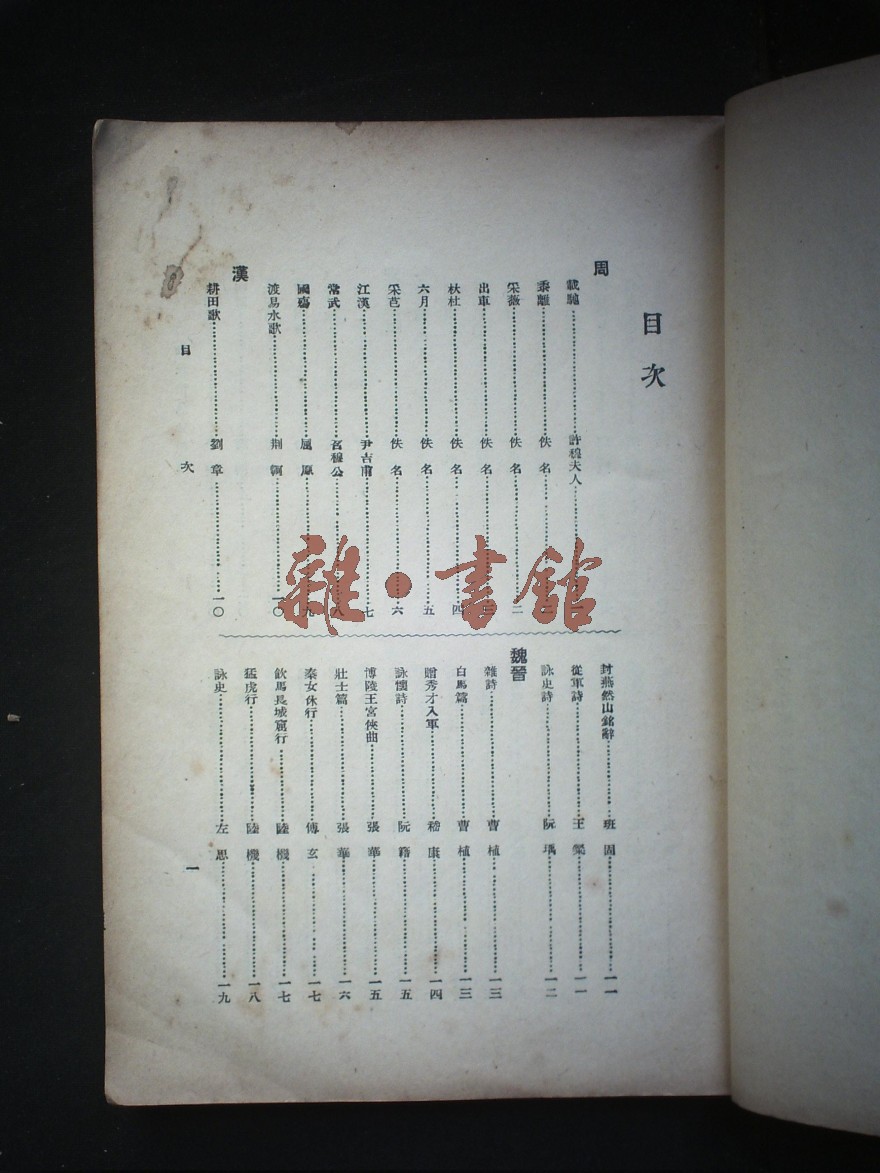 目次
周
載馳 許穆夫人 一
黍離 佚名 二
采薇 佚名 二
出車 佚名 三
杕杜 佚名 四
六月 佚名 五
采芑 佚名 六
江漢 尹吉甫 七
常武 召穆公 八
國殤 屈原 九
渡易水歌 荆軻 一〇
漢
耕田歌 劉章 一〇
封燕然山銘辭 班固 一一
從軍詩 王粲 一一
詠史詩 阮瑀 一二
魏晉
雜詩 曹植 一三
白馬篇 曹植 一三
贈秀才入軍 嵇康 一四
詠懷詩 阮籍 一五
博陵王宮俠曲 張華 一五
壯士篇 張華 一六
秦女休行 傅玄 一七
飲馬長城窟行 陸機 一七
猛虎行 陸機 一八
詠史 左思 一九
目次
一
雜·書館